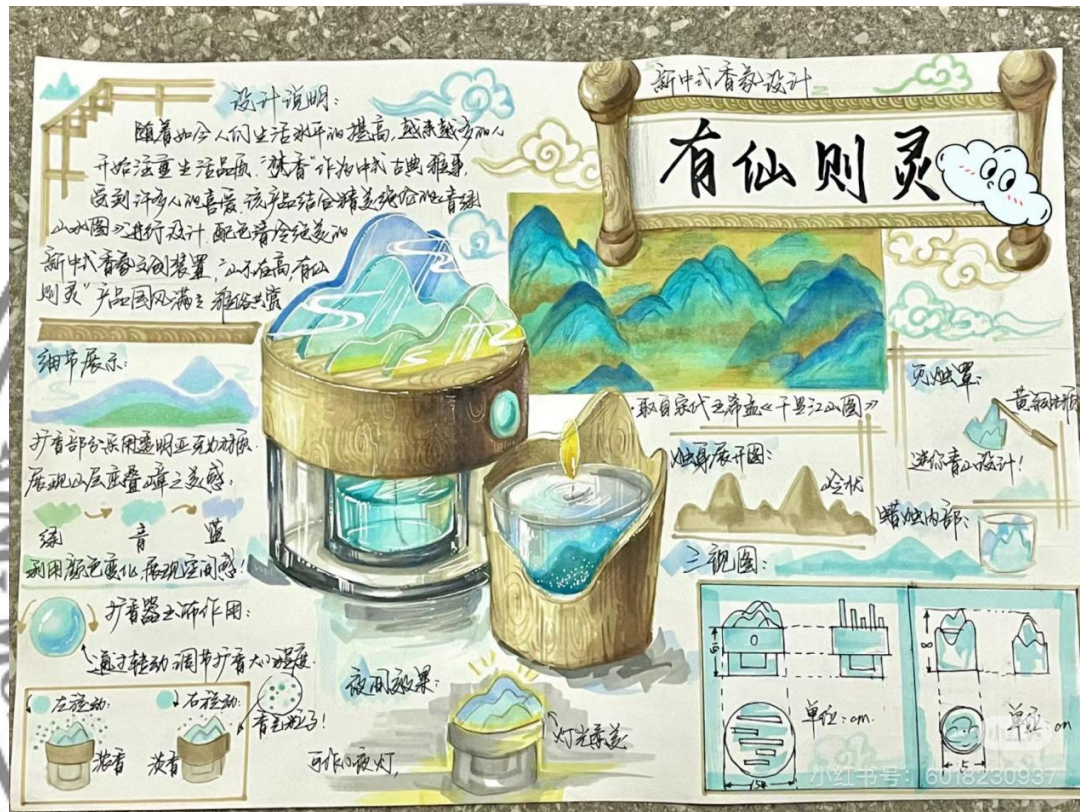 新中式香氛设计
有仙则灵
设计说明:
随着如今人们生活水平的提高,越来越多的人
开始注重生活品质,"焚香"作为中式古典雅事,
受到许多人的喜爱,该产品结合精美绝伦的《青绿
山水图》进行设计,配色清冷绝美的
新中式香氛立刻装置,"山不在高,有仙
则灵"产品国风满满 雅俗共赏
细节展示:
扩香部分采用透明亚克力材质
展现山层峦叠嶂之美感:
绿 青 蓝
利用颜色变化,展现空间感!
扩香器之师作用:
通过转动调节扩香大小强度.
左拉动:
右拉动:
浓香
淡香
夜间效果:
可作小夜灯,
灯光柔美
取自宋代王希孟《千里江山图》
烛身展开图:
山峦状
灭烛罩:
迷你青山设计!
蜡烛内部:
三视图:
单位:cm.
单位:cm
小红书
小红书号:6018230937